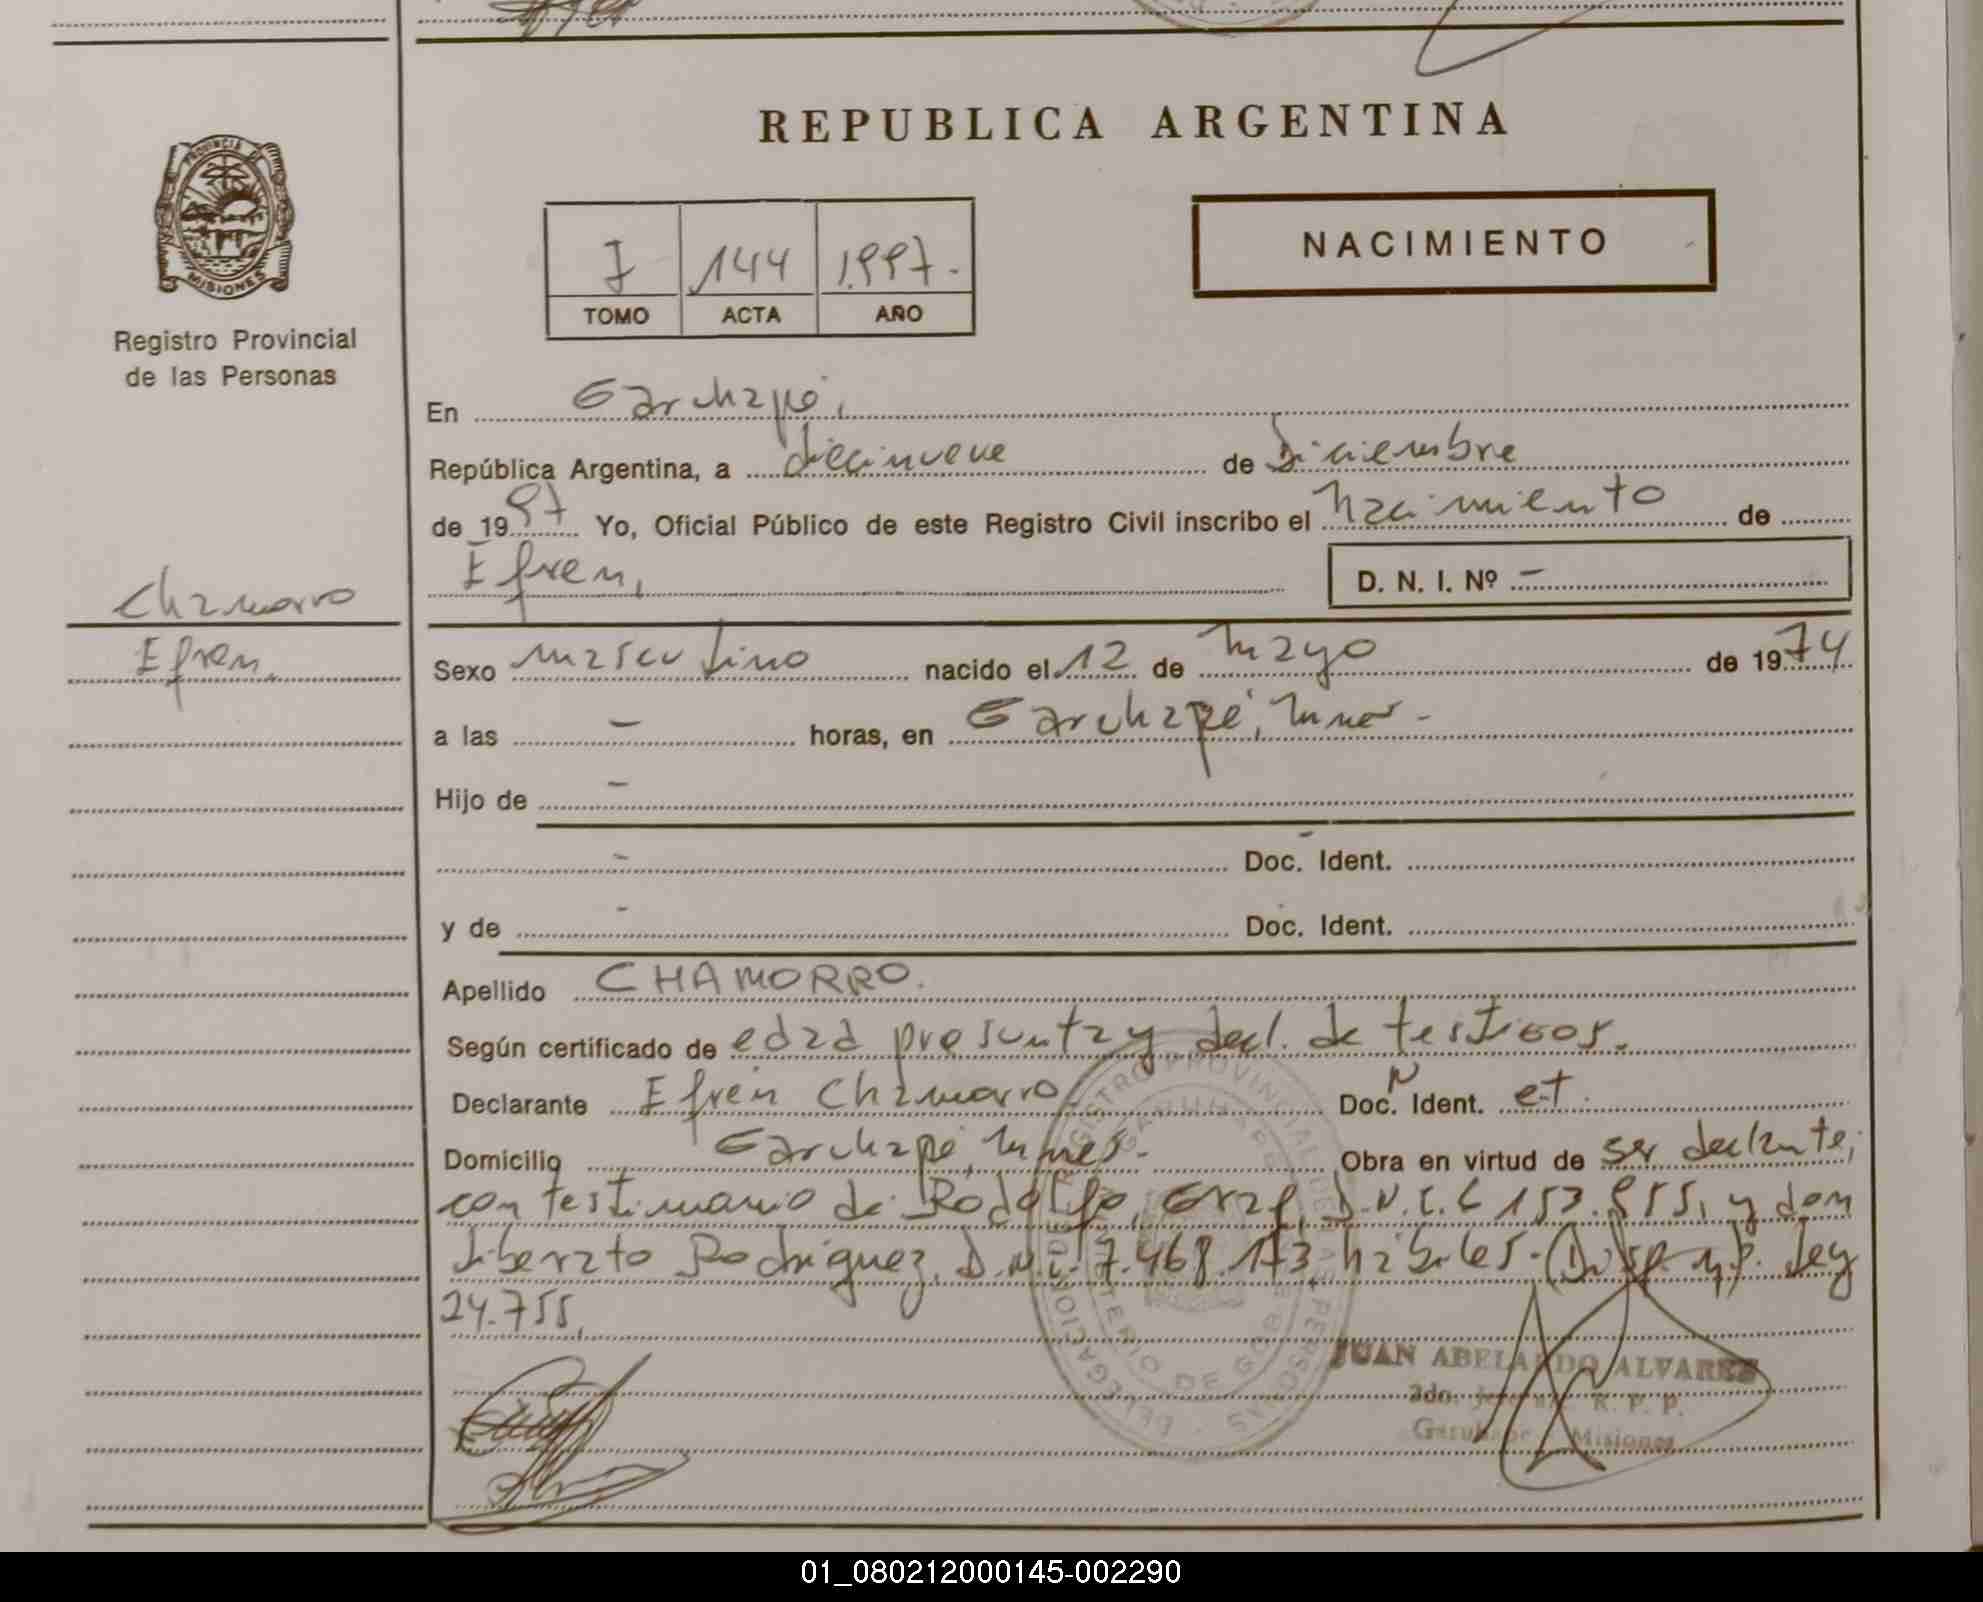 REPUBLICA ARGENTINA
PROVINCIA DE MISIONES
Registro Provincial
de las Personas
144 1.997.
TOMO ACTA AÑO
NACIMIENTO
En Garuhapé,
República Argentina, a diecinueve de Diciembre
de 1997 Yo, Oficial Público de este Registro Civil inscribo el nacimiento de
Efren, D. N. I. Nº -
Chamorro
Efren,
Sexo masculino nacido el 12 de mayo de 1974
a las - horas, en Garuhapé, Mnes.-
Hijo de -
- Doc. Ident. -
y de - Doc. Ident.
Apellido CHAMORRO.
Según certificado de edad presunta y decl. de testigos.
Declarante Efren Chamorro Doc. Ident.
Domicilio Garuhapé, Mnes.- Obra en virtud de ser declante,
con testimonio de Rodolfo, D.N.I. y don
Liberato Rodriguez, D.N.I. 7.468.173 habiles-( Ley
24.755,
JUAN ABELARDO ALVAREZ
2do. R. P. P.
Garuhape - Misiones
REGISTRO PROVINCIAL DE LAS PERSONAS
GARUHAPE
MINISTERIO DE GOBIERNO
DELEGACION
01_080212000145-002290